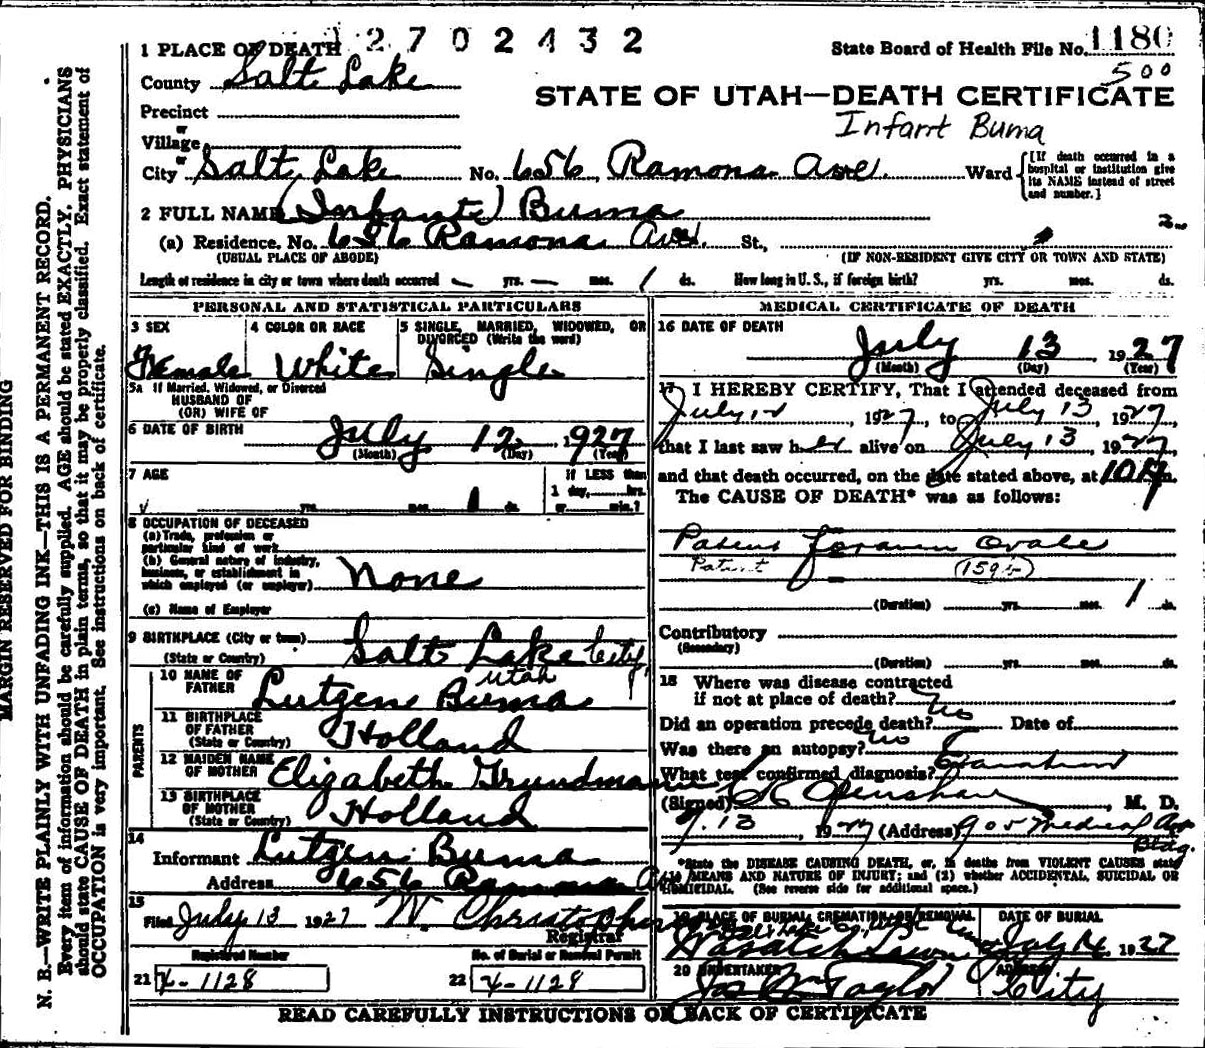 12702432
1 PLACE OF DEATH
State Board of Health File No. 1180
County Salt Lake
500
STATE OF UTAH—DEATH CERTIFICATE
Precinct
Infant Buma
or
Village
or
City Salt Lake No. 656 Ramona Ave. Ward
[If death occurred in a hospital or institution give its NAME instead of street and number.]
2 FULL NAME (Infant) Buma
(a) Residence. No. 656 Ramona Ave. St.,
(USUAL PLACE OF ABODE) (IF NON-RESIDENT GIVE CITY OR TOWN AND STATE)
Length of residence in city or town where death occurred — yrs. — mos. 1 ds. How long in U. S., if foreign birth? yrs. mos. ds.
PERSONAL AND STATISTICAL PARTICULARS
3 SEX 4 COLOR OR RACE 5 SINGLE, MARRIED, WIDOWED, OR DIVORCED (Write the word)
Female White Single
5a If Married, Widowed, or Divorced
HUSBAND OF
(OR) WIFE OF
6 DATE OF BIRTH July 12 1927
(Month) (Day) (Year)
7 AGE If LESS than
1 day, hrs.
yrs. mos. 1 ds. or min.?
8 OCCUPATION OF DECEASED
(a) Trade, profession or
particular kind of work
(b) General nature of industry,
business, or establishment in
which employed (or employer) None
(c) Name of Employer
9 BIRTHPLACE (City or town)
(State or Country) Salt Lake City,
Utah
10 NAME OF
FATHER Lutzen Buma
11 BIRTHPLACE
OF FATHER
(State or Country) Holland
12 MAIDEN NAME
OF MOTHER Elizabeth Grundmann
13 BIRTHPLACE
OF MOTHER
(State or Country) Holland
PARENTS
14
Informant Lutzen Buma
Address 656 Ramona Ave
15
Filed July 13 1927 W. Christopherson
Registrar
Registered Number No. of Burial or Removal Permit
21 X-1128 22 X-1128
MEDICAL CERTIFICATE OF DEATH
16 DATE OF DEATH
July 13, 1927
(Month) (Day) (Year)
17 I HEREBY CERTIFY, That I attended deceased from
July 12, 1927, to July 13 1927,
that I last saw her alive on July 13, 1927,
and that death occurred, on the date stated above, at 10 P m.
The CAUSE OF DEATH* was as follows:
Patent Foramen Ovale
Patent 159b
(Duration) yrs. mos. 1 ds.
Contributory
(Secondary)
(Duration) yrs. mos. ds.
18 Where was disease contracted
if not at place of death? No
Did an operation precede death? Date of
Was there an autopsy? no
What test confirmed diagnosis? Examination
(Signed) Openshaw, M. D.
7.13, 1927 (Address) 905 Medical Arts
Bldg.
*State the DISEASE CAUSING DEATH, or, in deaths from VIOLENT CAUSES state
(1) MEANS AND NATURE OF INJURY; and (2) whether ACCIDENTAL, SUICIDAL OR
HOMICIDAL. (See reverse side for additional space.)
19 PLACE OF BURIAL, CREMATION, OR REMOVAL DATE OF BURIAL
Wasatch Lawn July 14 1927
20 UNDERTAKER ADDRESS
Jos Wm Taylor City
READ CAREFULLY INSTRUCTIONS ON BACK OF CERTIFICATE
MARGIN RESERVED FOR BINDING
N. B.—WRITE PLAINLY WITH UNFADING INK—THIS IS A PERMANENT RECORD.
Every item of information should be carefully supplied. AGE should be stated EXACTLY. PHYSICIANS
should state CAUSE OF DEATH in plain terms, so that it may be properly classified. Exact statement of
OCCUPATION is very important. See instructions on back of certificate.